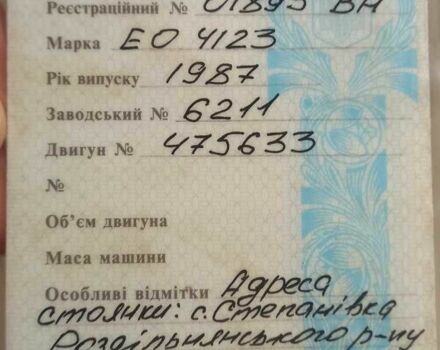 Реєстраційний № 01895 ВН
Марка ЕО 4123
Рік випуску 1987
Заводський № 6211
Двигун № 475633
№
Об'єм двигуна
Маса машини
Особливі відмітки Адреса
стоянки: с. Степанівка
Роздільнянського р-ну